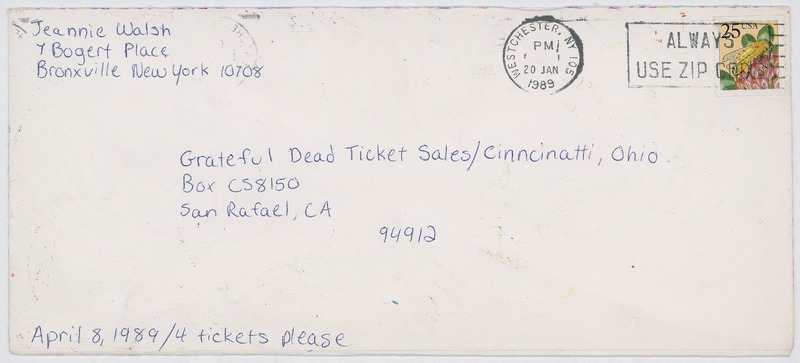 Jeannie Walsh
7 Bogert Place
Bronxville New York 10708
WESTCHESTER, NY 105
PM
20 JAN
1989
ALWAYS
USE ZIP CODE
25 USA
Grateful Dead Ticket Sales/Cinncinatti, Ohio
Box CS8150
San Rafael, CA
94912
April 8, 1989/4 tickets please